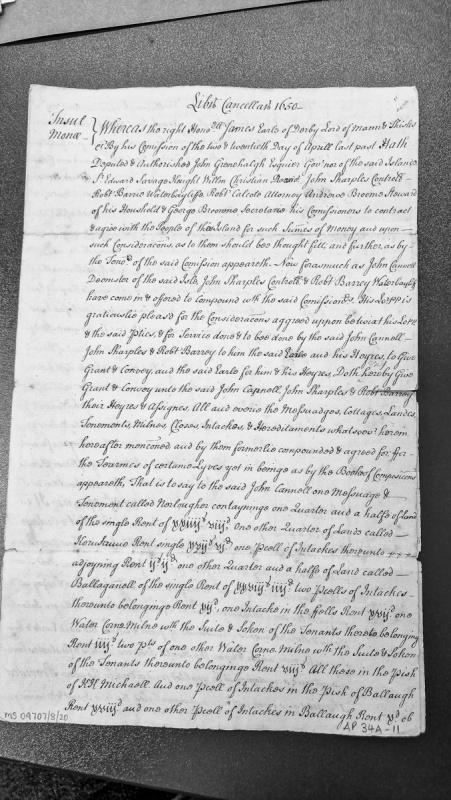 Libr Cancellar 1650
Insul Monæ } Whereas the right Honoble James Earle of Derby Lord of Mann & th'Isles
By his Comission of the two & twentieth Day of Aprill last past Hath
Deputed & Authorished John Greenhalgh Esquier Gov'nor of the said Island
Sr Edward Savage Knight Willm Christian John Sharples Controle
Robt Barrie Waterbayliffe Robt Calcote Attorney Andrewe Broome Steward
of his Houshold & George Browne Secretarie his Comissioners to contract
& agree with the People of the Island for such Sumes of Money and upon
such Consideracons as to them should bee thought fitt, and further as by
the Teno of the said Comission appeareth. Now forasmuch as John Cannell
Deemster of the said Isle John Sharples Controle & Robt Barrey Waterbayliffe
have come in & offered to Compound wth the said Comission His Lopp is
gratiouslie pleasd for the Consideracons aggreed upon betwixt his Lopp
& the said Pties, & for Service done & to bee done by the said John Cannell
John Sharples & Robt Barrey to him the said Earle and his Heyres, to Give
Grant & Convey, and the said Earle for him & his Heyres, Doth hereby Give
Grant & Convey unto the said John Cannell John Sharples & Robt Barrey
their Heyres & Assignes All and everie the Messuadges, Cottages, Landes
Tenements, Milnes, Closes, Intackes, & Hereditaments whatsoevr herein
hereafter menconed and by them formerlie compounded & agreed for ffor
the Tearmes of certaine Lyves yet in beinge as by the Bookes of Composicons
appeareth, That is to say to the said John Cannell one Messuage &
Tenement called Nerlougher contayninge one Quarter and a halfe of Land
of the single Rent of one other Quarter of Lands called
Rent single one Pcell of Intackes thereunto
adjoyning Rent one other Quarter and a halfe of Land called
Ballaganell of the single Rent of two Pcells of Intackes
thereunto belonginge Rent one Intacke in the ffells Rent one
Water Corne Milne with the Suite & Soken of the Tenants thereto belonging
Rent iiijs two Pts of one other Water Corne Milne wth the Suite & Soken
of the Tenants thereunto belonginge Rent All these in the Pish
of Kk Michaell. And one Pcell of Intackes in the Pish of Ballaugh
Rent and one other Pcell of Intackes in Ballaugh Rent ob
MS 09707/8/20
AP 34A-11